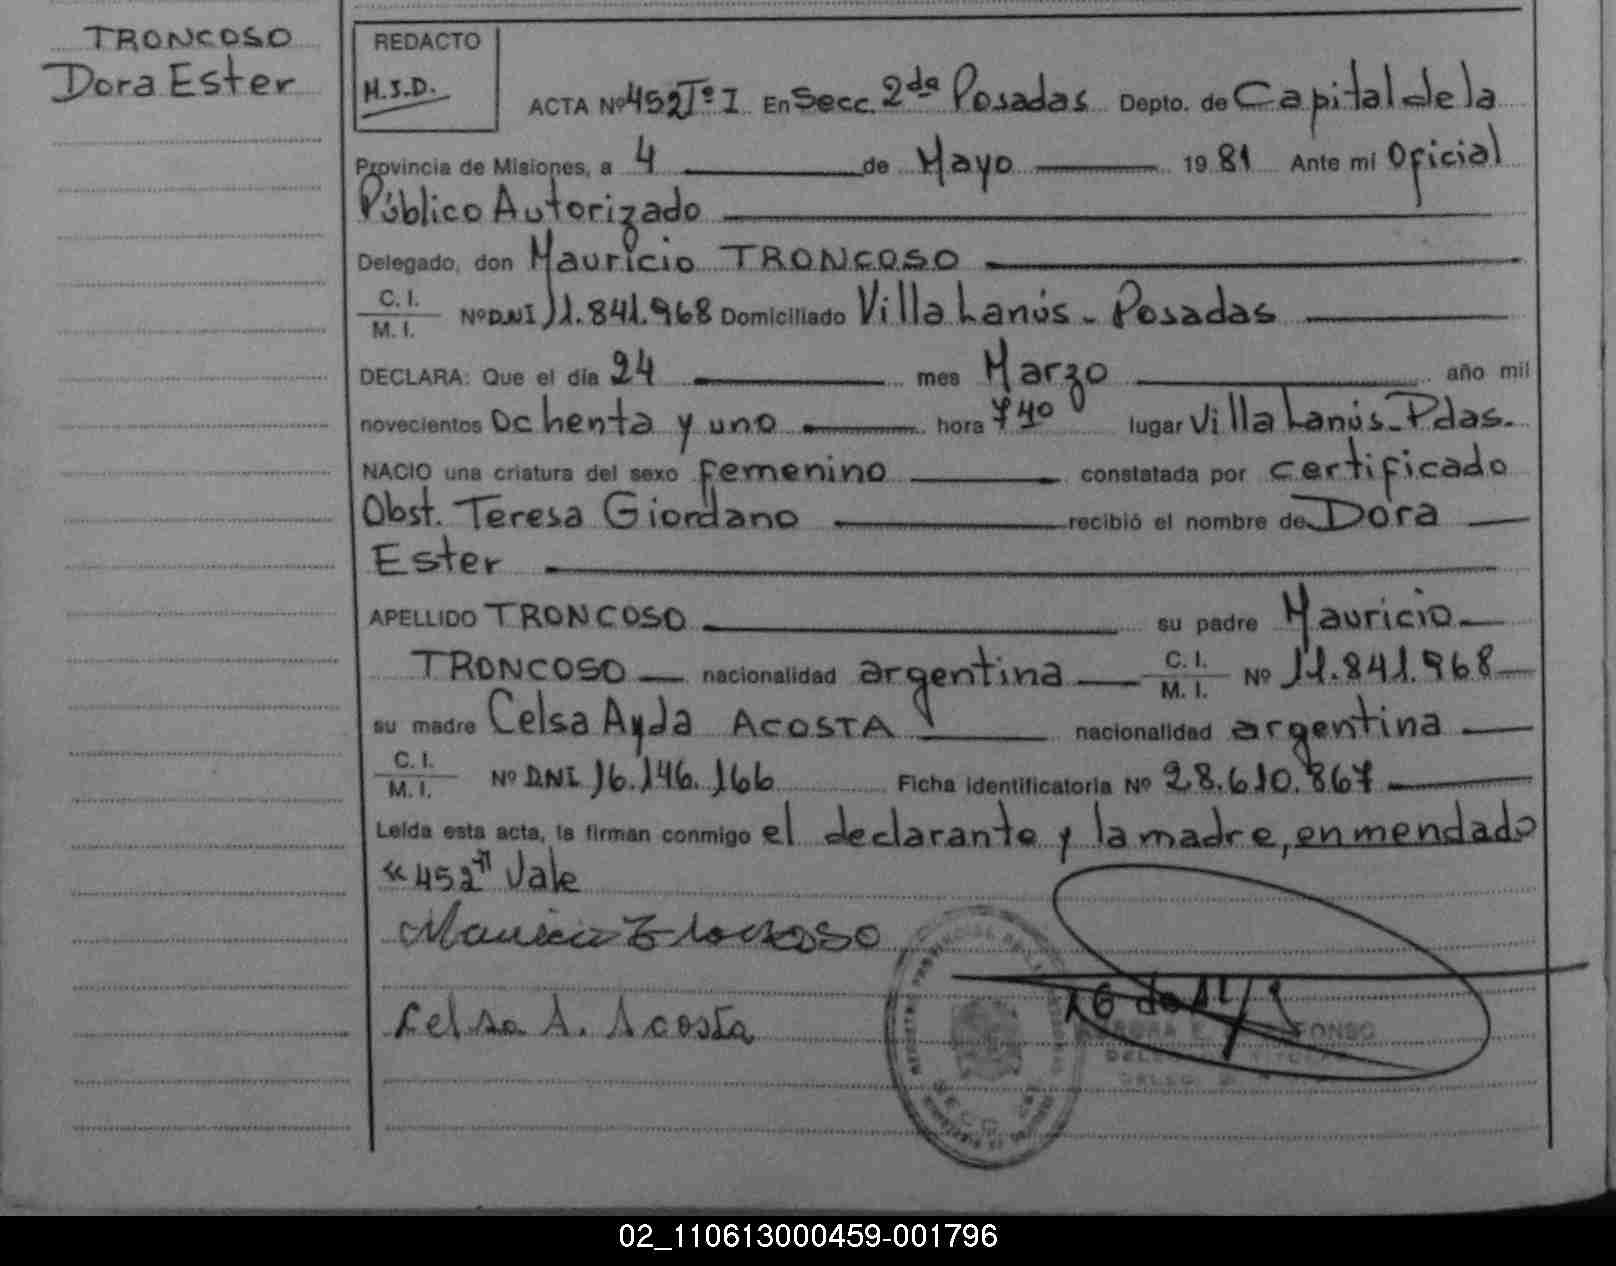 TRONCOSO
Dora Ester
REDACTO
M.S.D.
ACTA Nº 452 Tº I En Secc. 2da Posadas Depto. de Capital de la
Provincia de Misiones, a 4 de Mayo 1981 Ante mi Oficial
Público Autorizado
Delegado, don Mauricio TRONCOSO
C. I.
M. I. Nº DNI 11.841.968 Domiciliado Villa Lanús - Posadas
DECLARA: Que el día 24 mes Marzo año mil
novecientos ochenta y uno hora 7 40 lugar Villa Lanús - Pdas.
NACIO una criatura del sexo femenino constatada por certificado
Obst. Teresa Giordano recibió el nombre de Dora
Ester
APELLIDO TRONCOSO su padre Mauricio
TRONCOSO nacionalidad argentina C. I. M. I. Nº 11.841.968
su madre Celsa Ayda ACOSTA nacionalidad argentina
C. I.
M. I. Nº DNI 16.146.166 Ficha identificatoria Nº 28.610.867
Leída esta acta, la firman conmigo el declarante y la madre, enmendado
"452" Vale
Mauricio Troncoso
Celsa A. Acosta
02_110613000459-001796